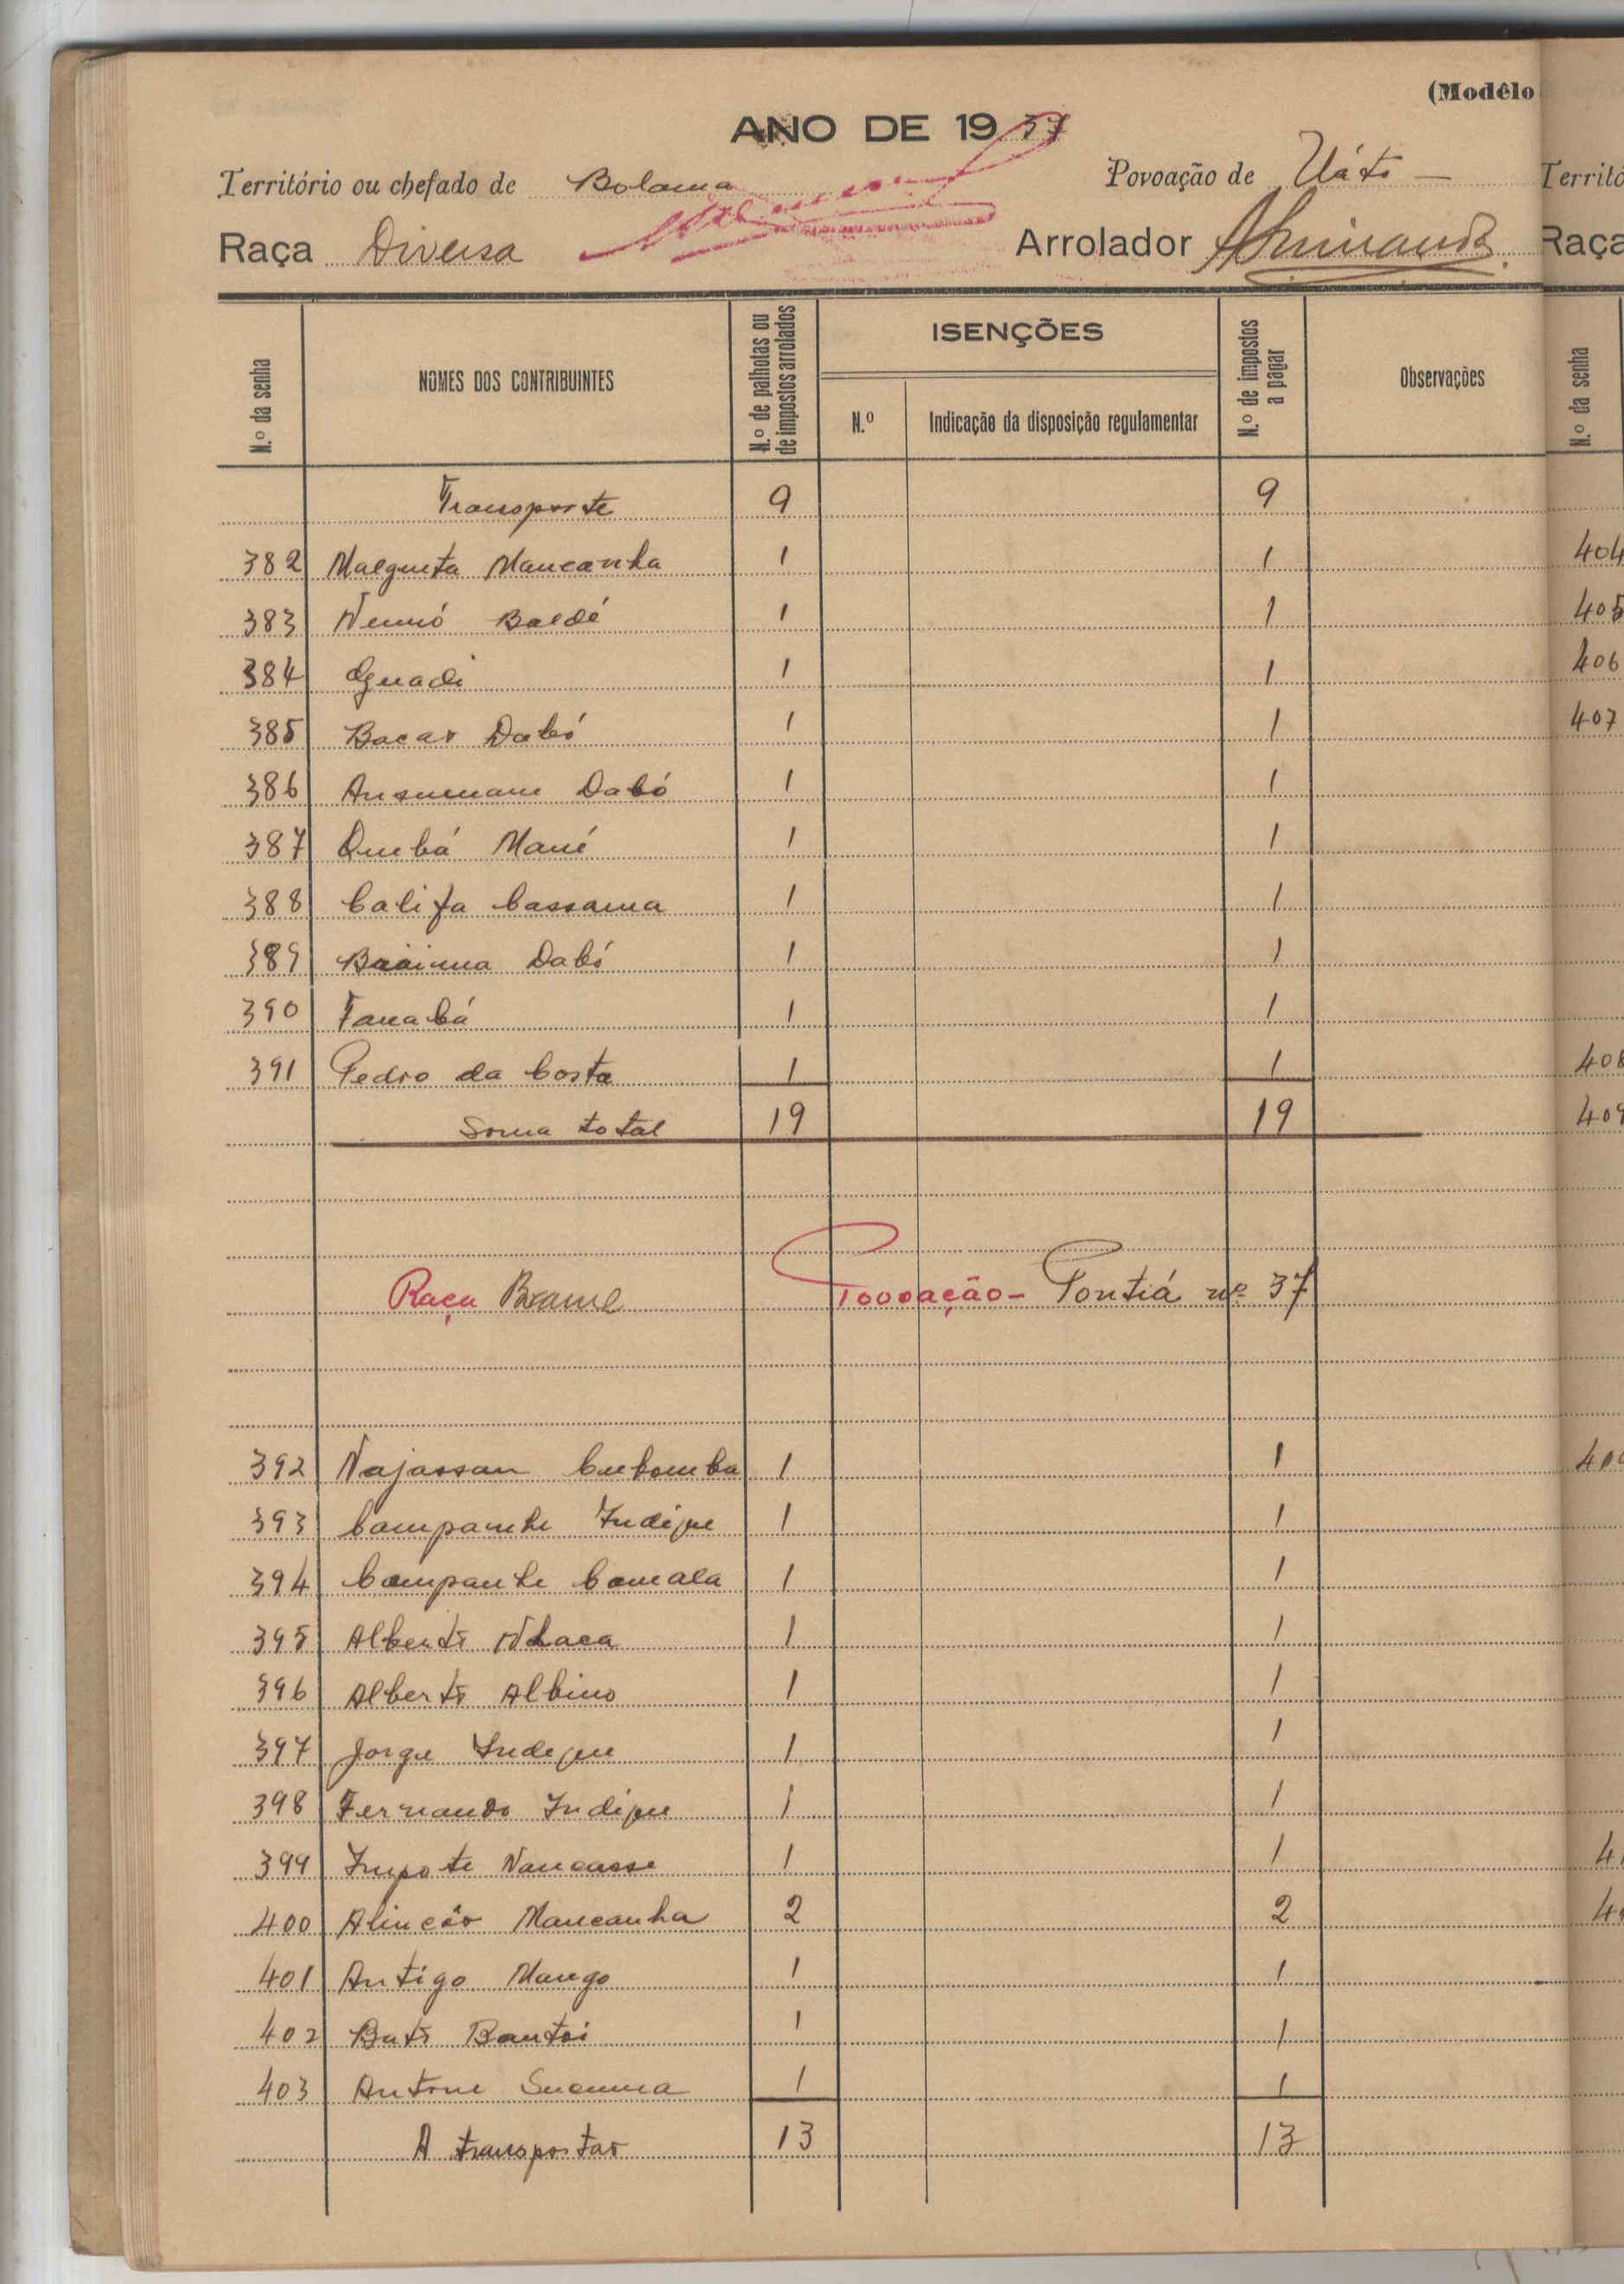 (Modêlo
ANO DE 1937
Território ou chefado de Bolama Povoação de Uáto —
Raça Diversa Arrolador
N.º da senha NOMES DOS CONTRIBUINTES N.º de palhotas ou de impostos arrolados ISENÇÕES N.º de impostos a pagar Observações
N.º Indicação da disposição regulamentar
Transporte 9 9
382 Malgueta Mancanha 1 1
383 Nemó Baldé 1 1
384 1 1
385 Bacar Dabó 1 1
386 Ansumane Dabó 1 1
387 Quebá Mané 1 1
388 Califa Cassama 1 1
389 Braima Dabó 1 1
390 Fanabá 1 1
391 Pedro da Costa 1 1
Soma total 19 19
Raça Brame Povoação - Pontiá nº 37
392 Najassan 1 1
393 Campanhe Indeque 1 1
394 Campanhe Camala 1 1
395 Alberto Nhaca 1 1
396 Alberto Albino 1 1
397 Jorge Indeque 1 1
398 Fernando Indeque 1 1
399 Impote Nancasse 1 1
400 Alincão Mancanha 2 2
401 Antigo Mango 1 1
402 Buto Bantoi 1 1
403 Antone 1 1
A transportar 13 13
Território
Raça
N.º da senha
404
405
406
407
408
409